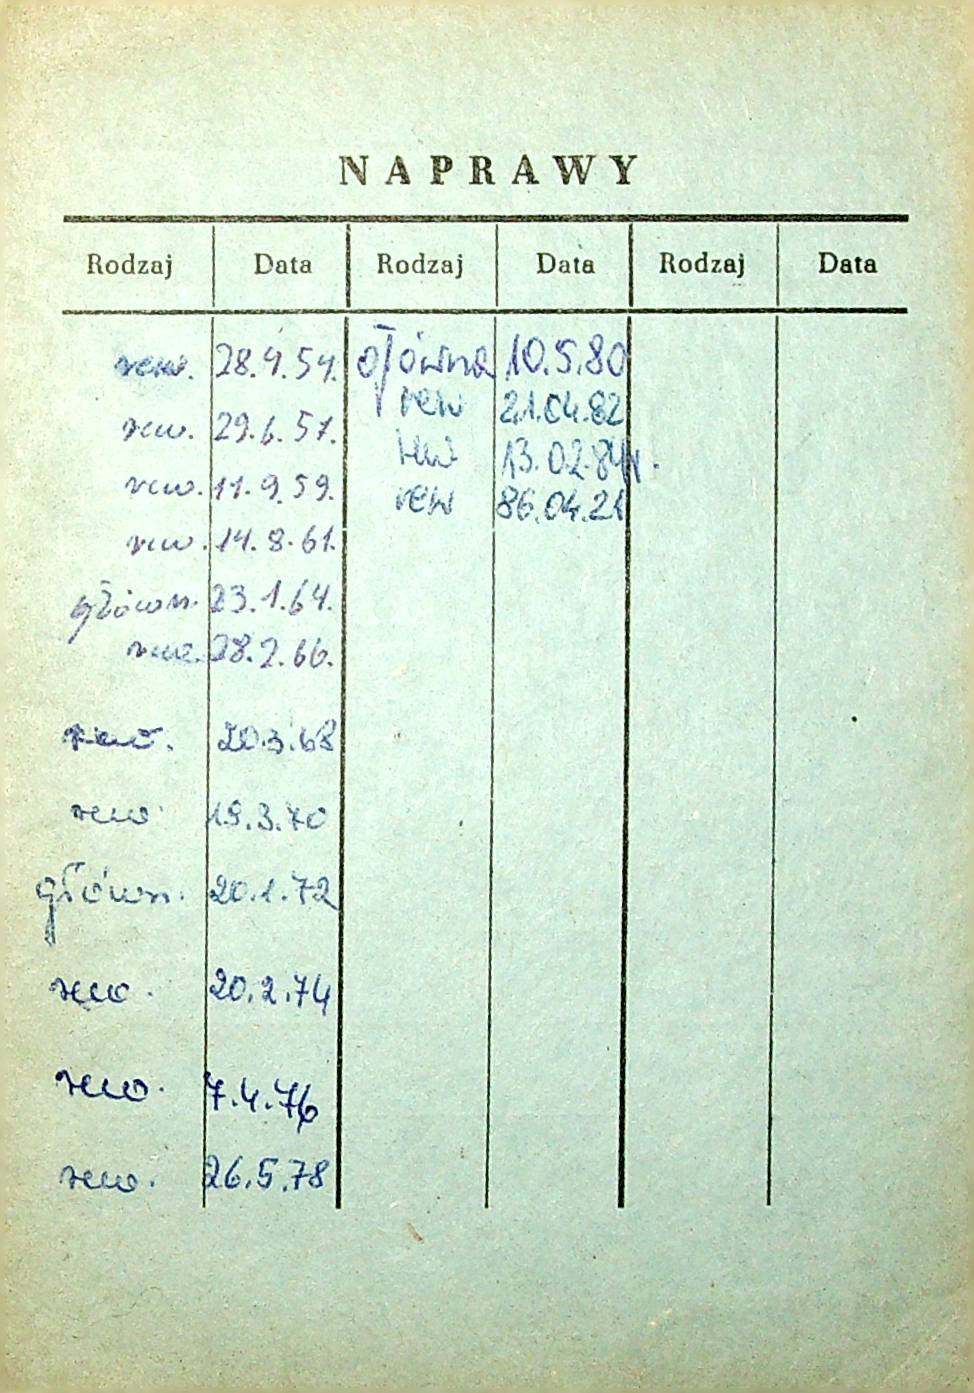 NAPRAWY
Rodzaj Data Rodzaj Data Rodzaj Data
rew. 28.4.54. główna 10.5.80
rew. 29.6.57. rew 21.04.82
rew. 11.9.59. rew 13.02.84r.
rew. 14.8.61. rew 86.04.21
główn. 23.1.64.
rew. 28.2.66.
rew. 20.3.68
rew. 19.3.70
główn. 20.1.72
rew. 20.2.74
rew. 7.4.76
rew. 26.5.78